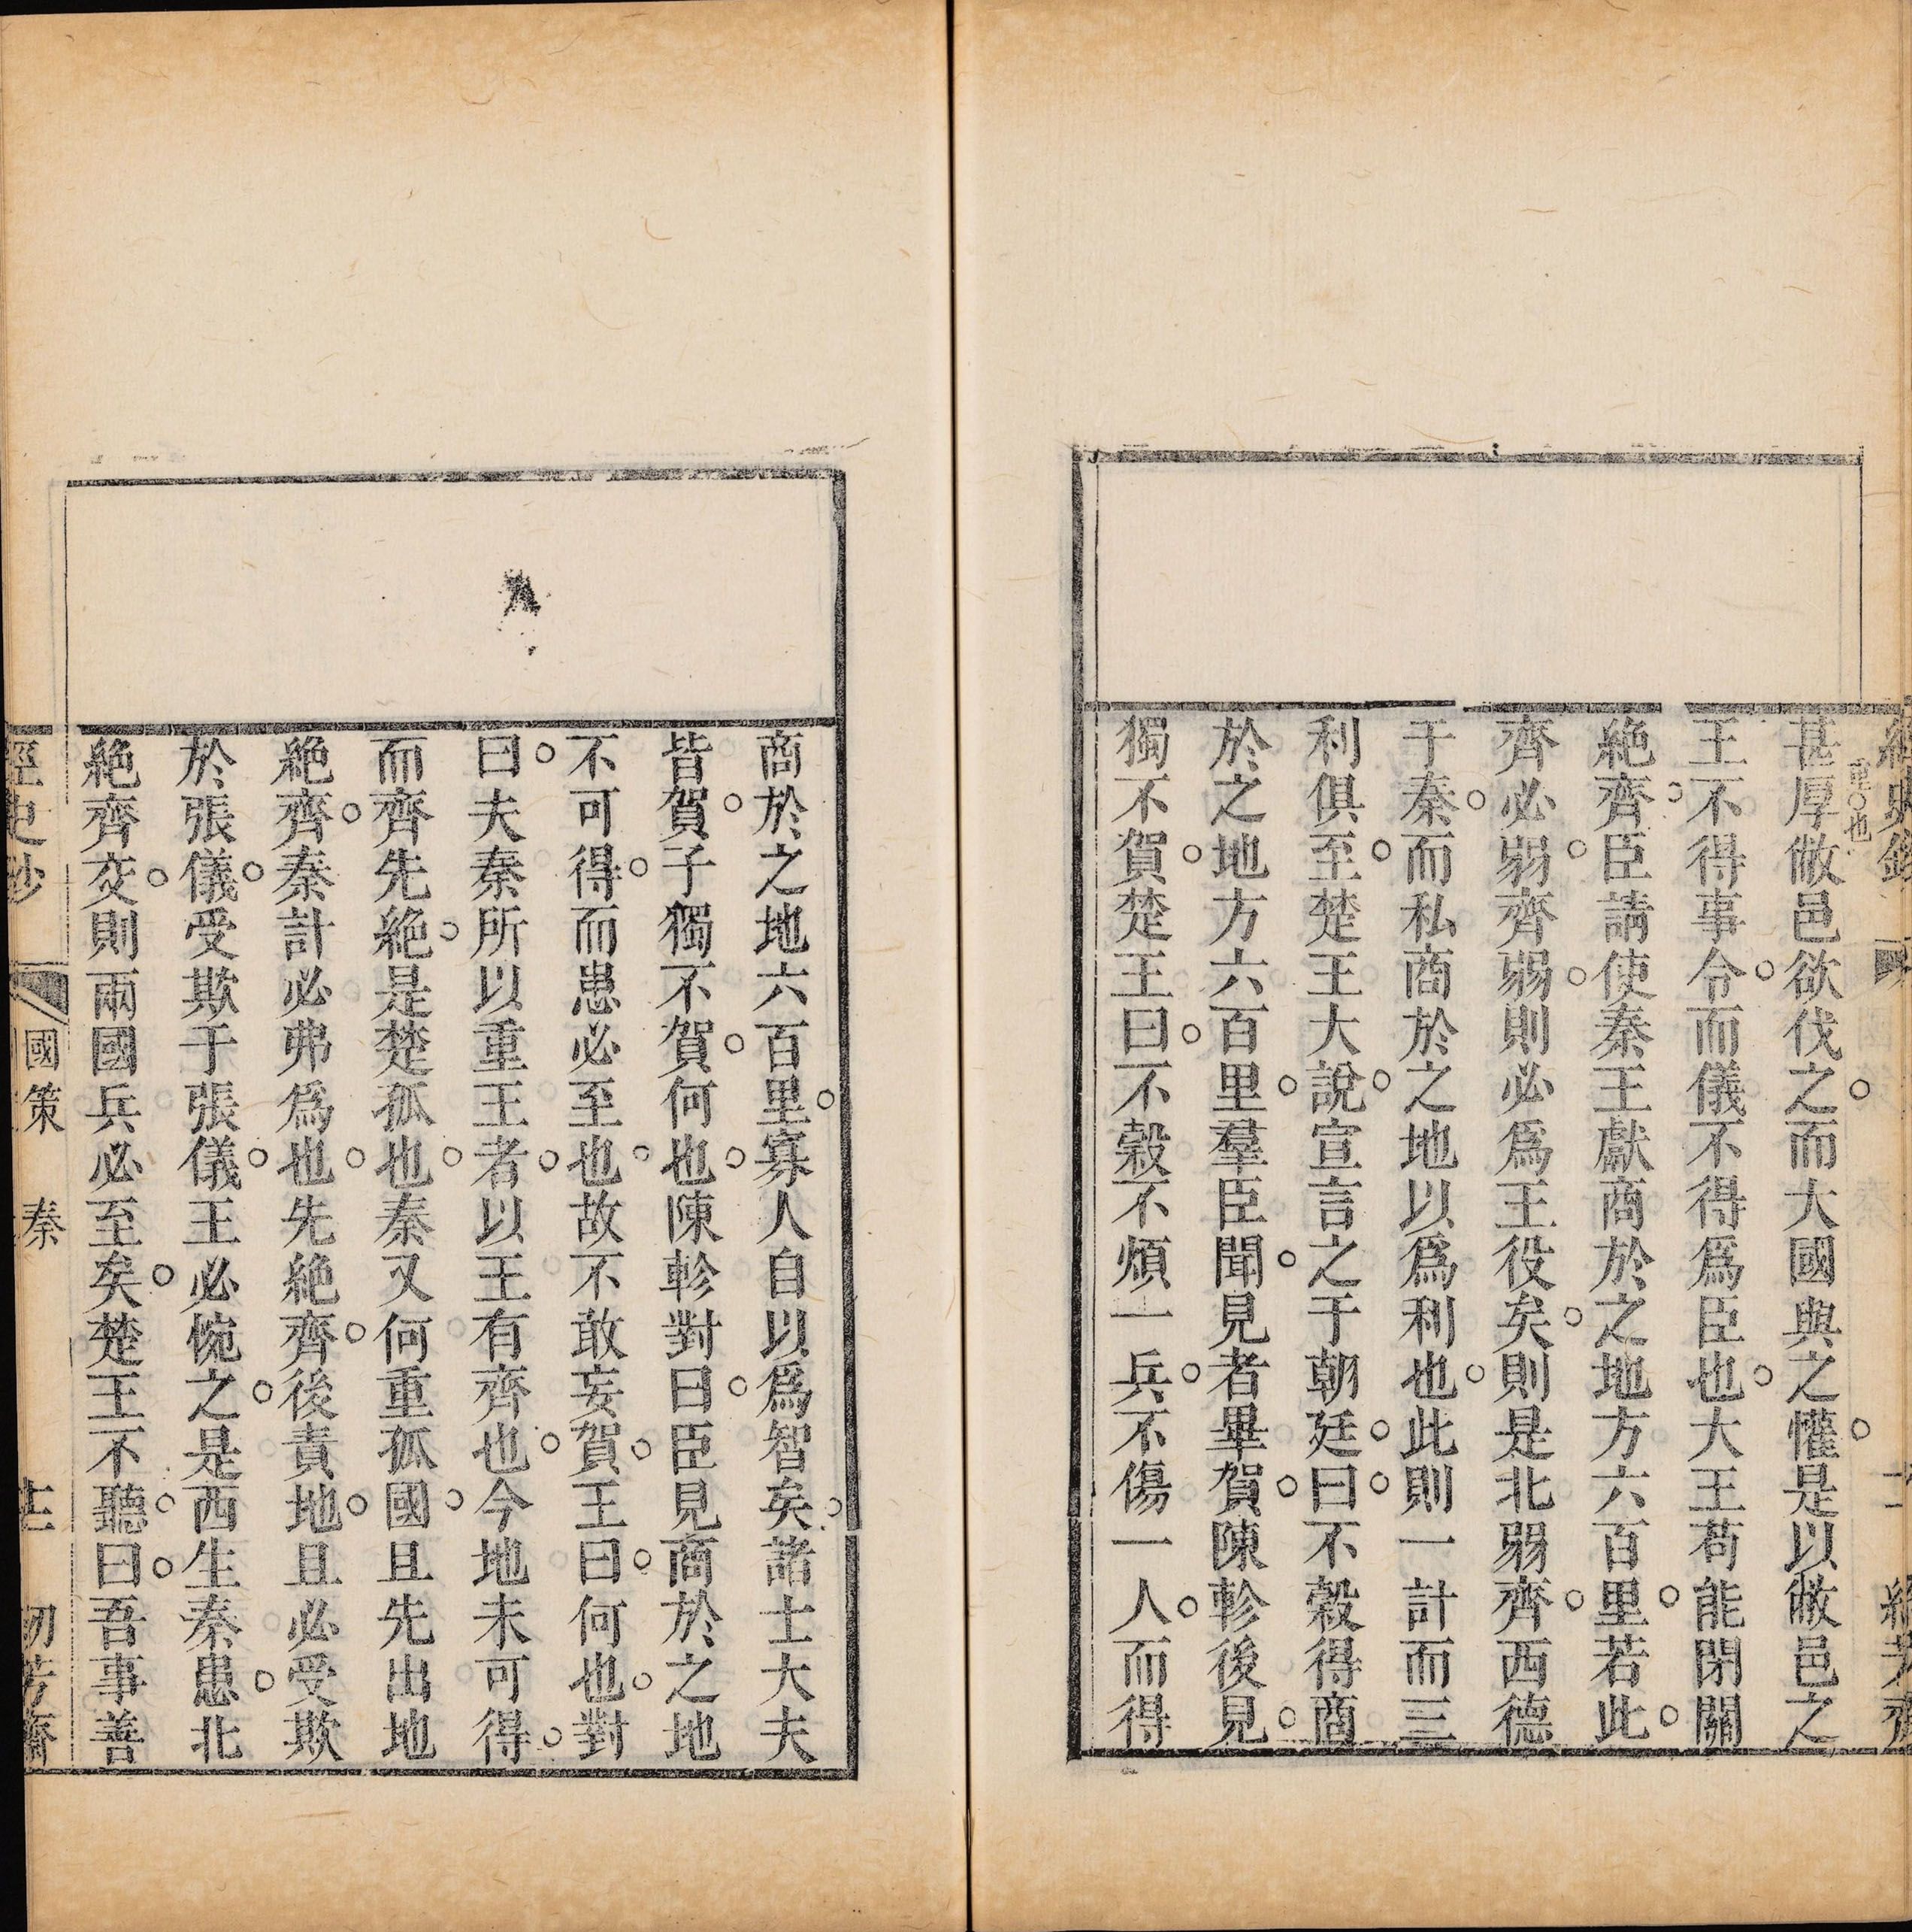 重○也
甚厚敝邑欲伐之而大國與之懽是以敝邑之
王不得事令而儀不得爲臣也大王苟能閉關
絶齊臣請使秦王獻商於之地方六百里若此
齊必弱齊弱則必爲王役矣則是北弱齊西德
于秦而私商於之地以爲利也此則一計而三
利俱至楚王大說宣言之于朝廷曰不穀得商
於之地方六百里羣臣聞見者畢賀陳軫後見
獨不賀楚王曰不穀不煩一兵不傷一人而得
商於之地六百里寡人自以爲智矣諸士大夫
皆賀子獨不賀何也陳軫對曰臣見商於之地
不可得而患必至也故不敢妄賀王曰何也對
曰夫秦所以重王者以王有齊也今地未可得
而齊先絶是楚孤也秦又何重孤國且先出地
絶齊秦計必弗爲也先絶齊後責地且必受欺
於張儀受欺于張儀王必惋之是西生秦患北
絶齊交則兩國兵必至矣楚王不聽曰吾事善
經史鈔
國策 秦